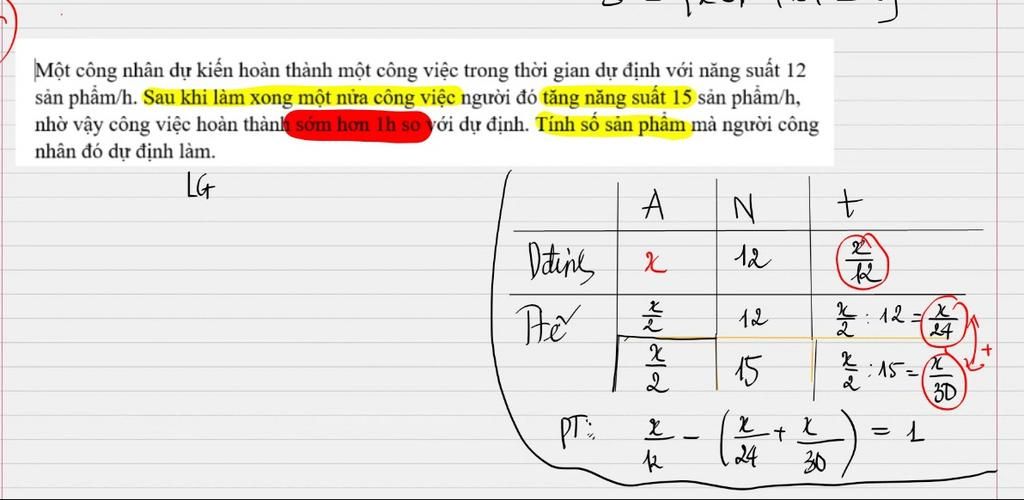 Một công nhân dự kiến hoàn thành một công việc trong thời gian dự định với năng suất 12
sản phẩm/h. Sau khi làm xong một nửa công việc người đó tăng năng suất 15 sản phẩm/h,
nhờ vậy công việc hoàn thành sớm hơn 1h so với dự định. Tính số sản phẩm mà người công
nhân đó dự định làm.
LG
A N t
Dđịnh x 12 x/12
Ttế x/2 12 x/2 : 12 = x/24
x/2 15 x/2 : 15 = x/30 +
PT: x/12 - (x/24 + x/30) = 1